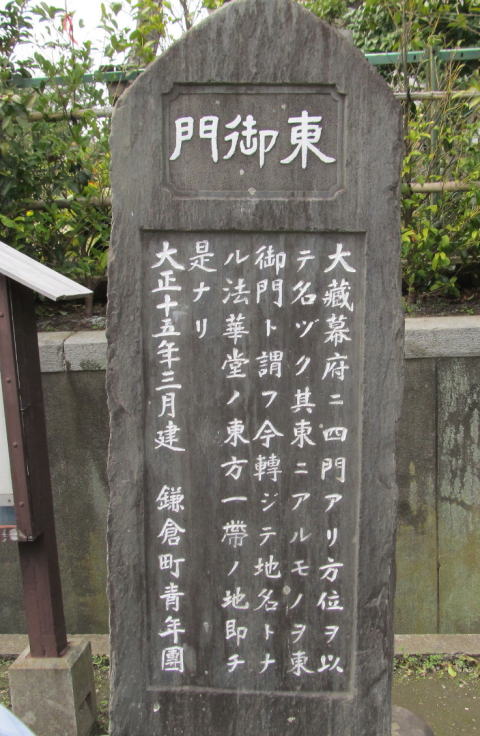 東御門
大藏幕府ニ四門アリ方位ヲ以
テ名ヅク其東ニアルモノヲ東
御門ト謂フ今轉ジテ地名トナ
ル法華堂ノ東方一帶ノ地即チ
是ナリ
大正十五年三月建 鎌倉町青年團